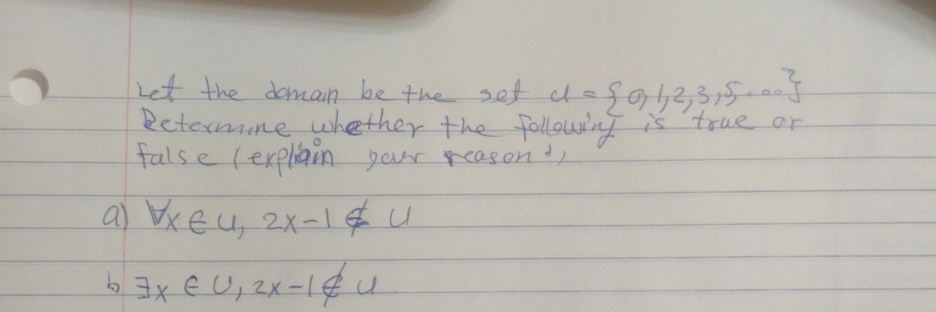 Let the domain be the set U = {0,1,2,3,5....}
Determine whether the following is true or
false (explain your reason.),
a) ∀x ∈ U, 2x-1 ∉ U
b ∃x ∈ U, 2x-1 ∉ U